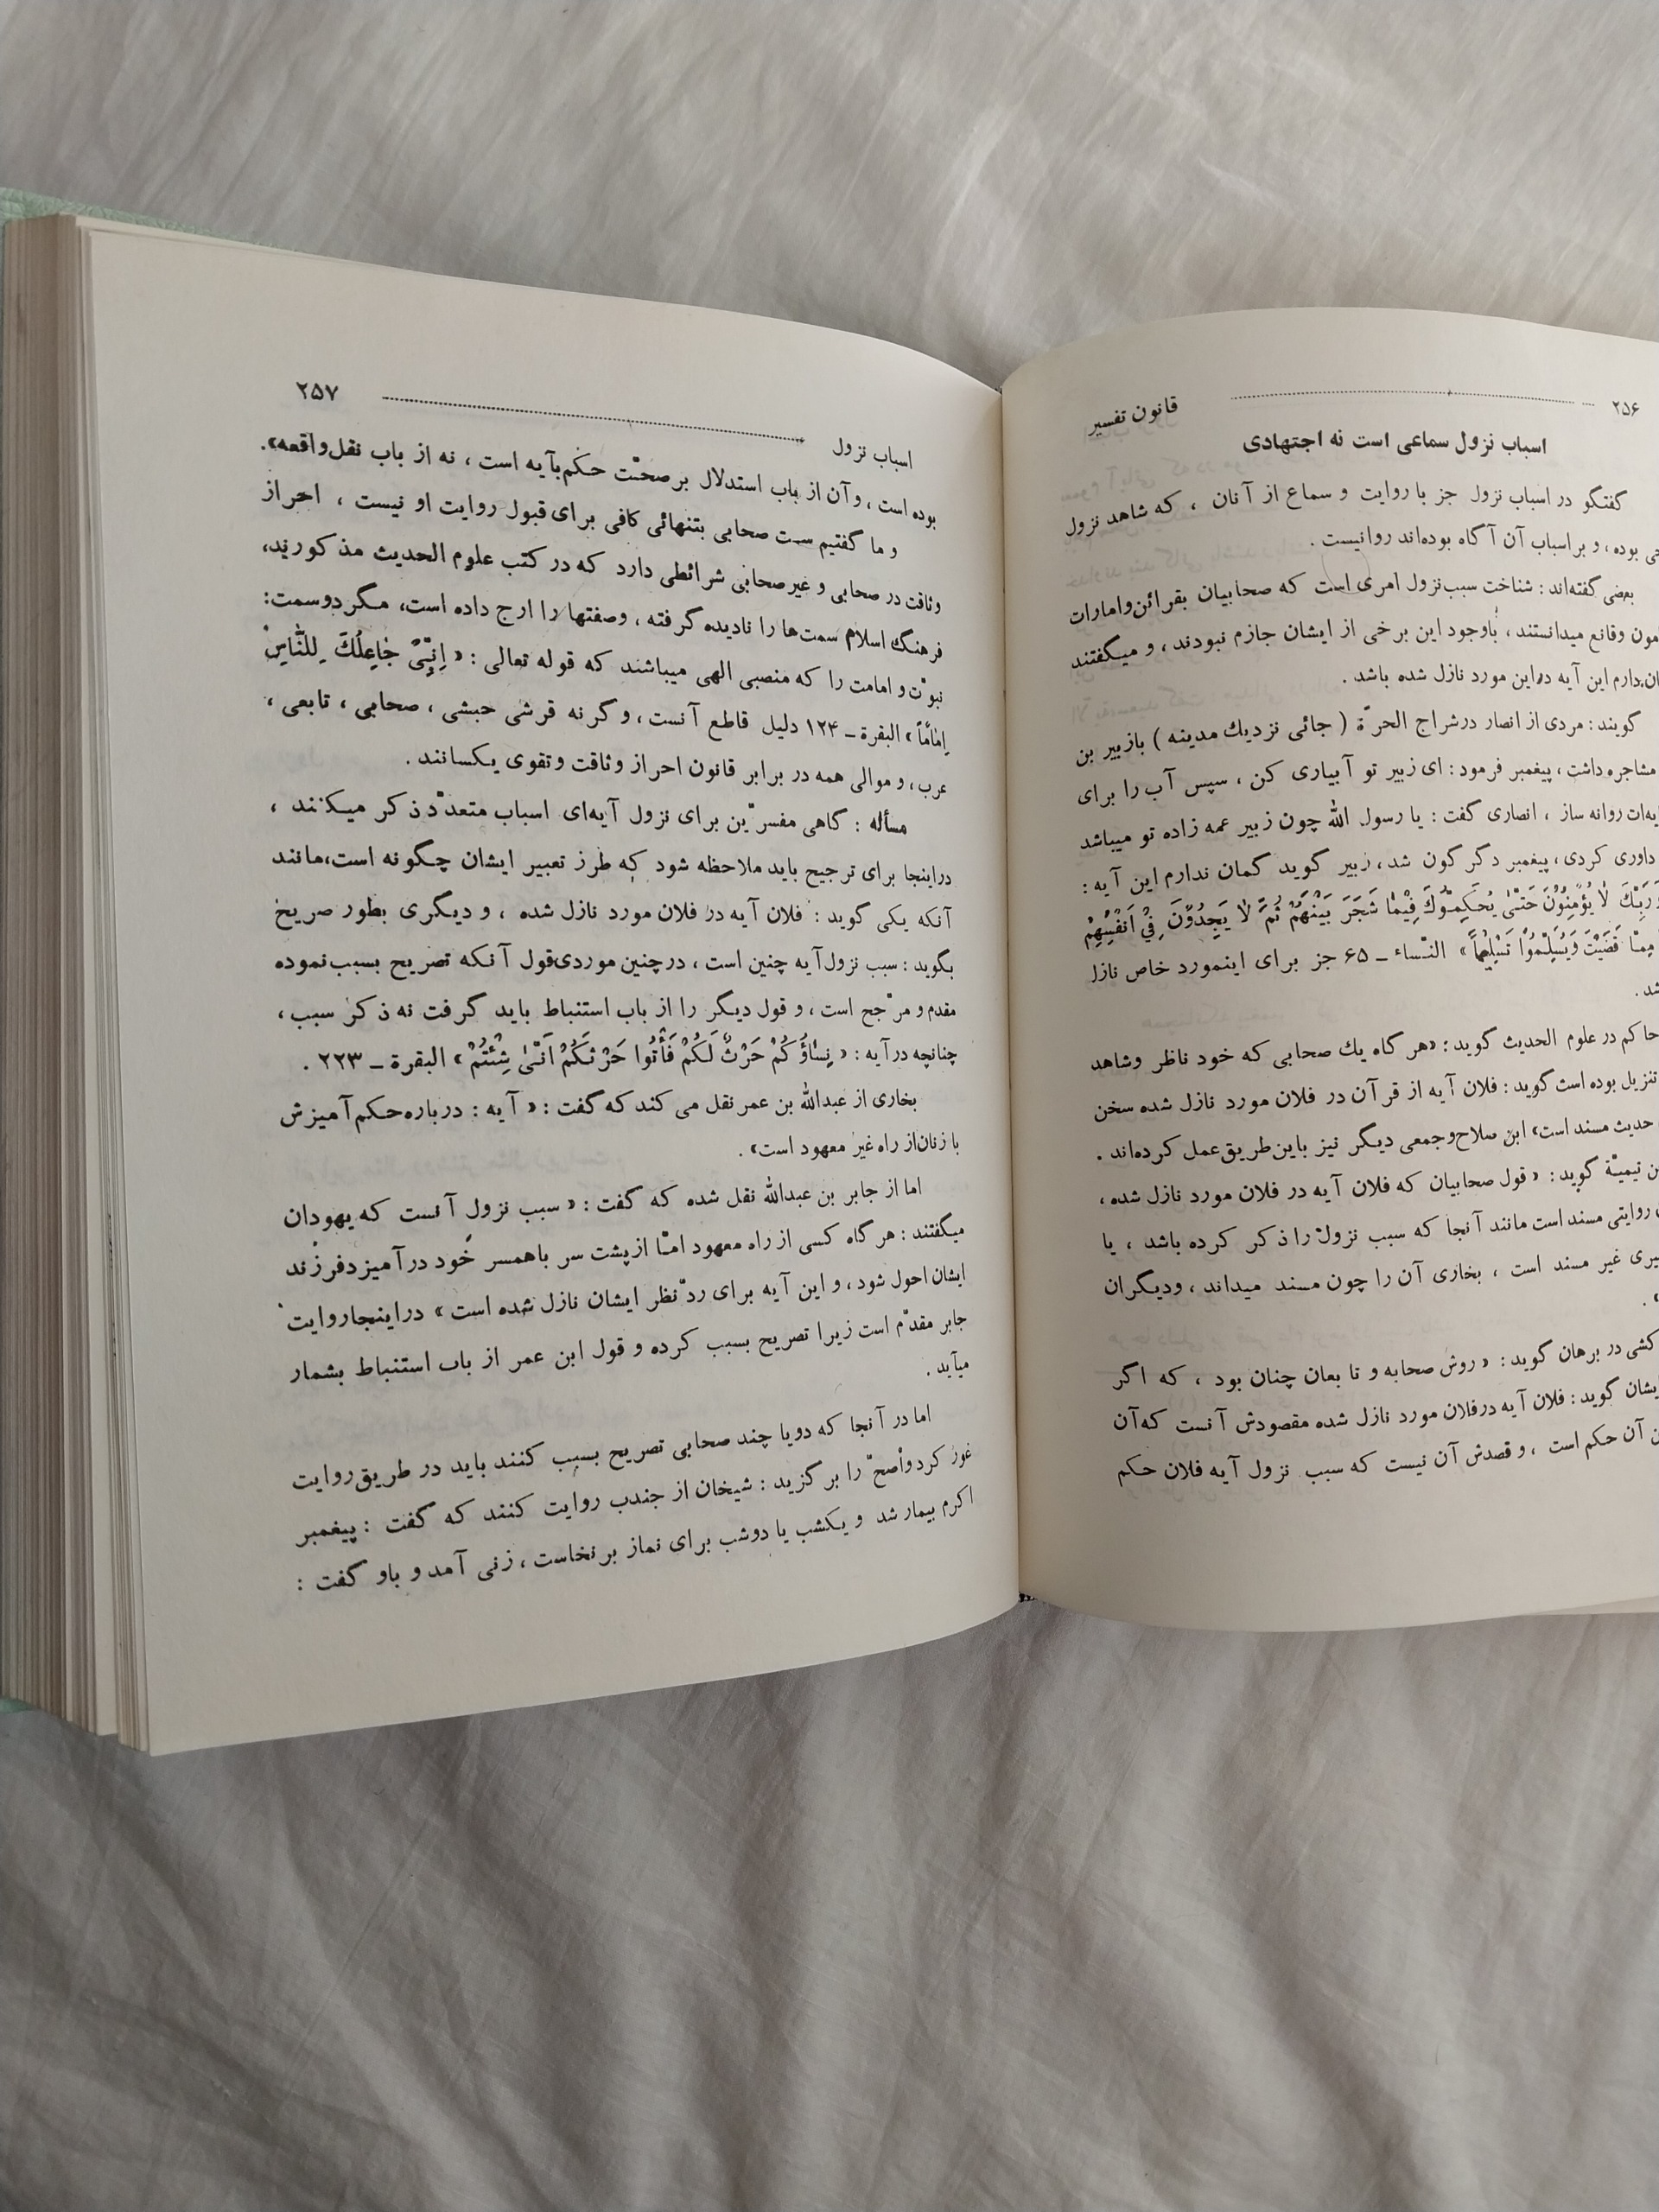 ۲۵۶ قانون تفسیر
اسباب نزول سماعی است نه اجتهادی
گفتگو در اسباب نزول جز با روایت و سماع از آنان ، که شاهد نزول
بوده ، و بر اسباب آن آگاه بوده‌اند روانیست .
بعضی گفته‌اند : شناخت سبب نزول امری است که صحابیان بقرائن و امارات
وقایع میدانستند ، باوجود این برخی از ایشان جازم نبودند ، و میگفتند
دارم این آیه دراین مورد نازل شده باشد .
گویند : مردی از انصار درشراج الحرّة ( جائی نزدیك مدینه ) بازبیر بن
مشاجره داشت ، پیغمبر فرمود : ای زبیر تو آبیاری کن ، سپس آب را برای
روانه ساز ، انصاری گفت : یا رسول الله چون زبیر عمه زاده تو میباشد
داوری کردی ، پیغمبر دگرگون شد ، زبیر گوید گمان ندارم این آیه :
وَرَبِّكَ لاٰ يُؤْمِنُوُنَ حَتّىٰ يُحَكِّمُوُكَ فِيْمٰا شَجَرَ بَيْنَهُمْ ثُمَّ لاٰ يَجِدُوُنَ فِيْ اَنْفُسِهِمْ
مِمّٰا قَضَيْتَ وَيُسَلِّمُوُا تَسْلِيْماً » النّساء ـ ۶۵ جز برای اینمورد خاص نازل
شد .
حاکم در علوم الحدیث گوید : «هر گاه یك صحابی که خود ناظر وشاهد
تنزیل بوده است گوید : فلان آیه از قرآن در فلان مورد نازل شده سخن
حدیث مسند است» ابن صلاح و جمعی دیگر نیز باین طریق عمل کرده‌اند .
تیمیّة گوید : « قول صحابیان که فلان آیه در فلان مورد نازل شده ،
روایتی مسند است مانند آنجا که سبب نزول را ذکر کرده باشد ، یا
غیر مسند است ، بخاری آن را چون مسند میداند ، ودیگران
» .
در برهان گوید : « روش صحابه و تابعان چنان بود ، که اگر
گوید : فلان آیه درفلان مورد نازل شده مقصودش آنست که آن
آن حکم است ، و قصدش آن نیست که سبب نزول آیه فلان حکم
اسباب نزول ۲۵۷
بوده است ، و آن از باب استدلال برصحّت حکم بآیه است ، نه از باب نقل واقعه».
و ما گفتیم سمت صحابی بتنهائی کافی برای قبول روایت او نیست ، احراز
وثاقت در صحابی و غیرصحابی شرائطی دارد که در کتب علوم الحدیث مذکورند،
فرهنگ اسلام سمت‌ها را نادیده گرفته ، وصفتها را ارج داده است، مگردوسمت:
نبوّت و امامت را که منصبی الهی میباشند که قوله تعالی : « اِنّيْ جٰاعِلُكَ لِلنّٰاسِ
اِمٰاماً » البقرة ـ ۱۲۴ دلیل قاطع آنست ، و گرنه قرشی حبشی ، صحابی ، تابعی ،
عرب ، و موالی همه در برابر قانون احراز وثاقت وتقوی یکسانند .
مسأله : گاهی مفسرّین برای نزول آیه‌ای اسباب متعدّد ذکر میکنند ،
دراینجا برای ترجیح باید ملاحظه شود که طرز تعبیر ایشان چگونه است،مانند
آنکه یکی گوید : فلان آیه در فلان مورد نازل شده ، و دیگری بطور صریح
بگوید : سبب نزول آیه چنین است ، درچنین موردی قول آنکه تصریح بسبب نموده
مقدم و مرّجح است ، و قول دیگر را از باب استنباط باید گرفت نه ذکر سبب ،
چنانچه درآیه : « نِسٰاؤُكُمْ حَرْثٌ لَكُمْ فَأْتُوا حَرْثَكُمْ اَنّىٰ شِئْتُمْ » البقرة ـ ۲۲۳ .
بخاری از عبدالله بن عمر نقل می کند که گفت : « آیه : درباره حکم آمیزش
با زنان از راه غیر معهود است» .
اما از جابر بن عبدالله نقل شده که گفت : « سبب نزول آنست که یهودان
میگفتند : هر گاه کسی از راه معهود امّا ازپشت سر باهمسر خود درآمیزدفرزند
ایشان احول شود ، و این آیه برای ردّ نظر ایشان نازل شده است » دراینجاروایت
جابر مقدّم است زیرا تصریح بسبب کرده و قول ابن عمر از باب استنباط بشمار
میآید .
اما در آنجا که دویا چند صحابی تصریح بسبب کنند باید در طریق روایت
غور کرد واصحّ را برگزید : شیخان از جندب روایت کنند که گفت : پیغمبر
اکرم بیمار شد و یکشب یا دوشب برای نماز برنخاست ، زنی آمد و باو گفت :